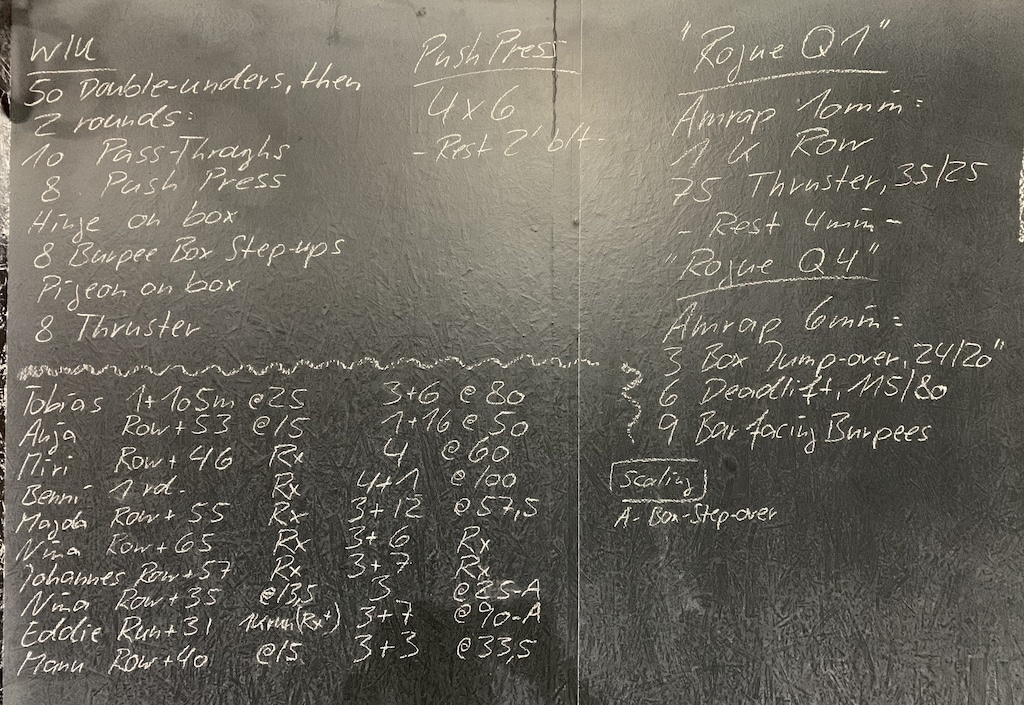 W/U
50 Double-unders, then
2 rounds:
10 Pass-Throughs
8 Push Press
Hinge on box
8 Burpee Box Step-ups
Pigeon on box
8 Thruster
Push Press
4x6
- Rest 2' b/t -
"Rogue Q1"
Amrap 10min:
1 K Row
75 Thruster, 35/25
- Rest 4min -
"Rogue Q4"
Amrap 6min:
3 Box Jump-over, 24/20"
6 Deadlift, 115/80
9 Bar facing Burpees
Scaling
A- Box-Step-over
Tobias 1+105m @25 3+6 @80
Anja Row+53 @15 1+16 @50
Miri Row+46 Rx 4 @60
Benni 1 rd. Rx 4+1 @100
Magda Row+55 Rx 3+12 @57,5
Nina Row+65 Rx 3+6 Rx
Johannes Row+57 Rx 3+7 Rx
Nina Row+35 @13,5 3 @25-A
Eddie Run+31 1K run (Rx+) 3+7 @90-A
Manu Row+40 @15 3+3 @33,5